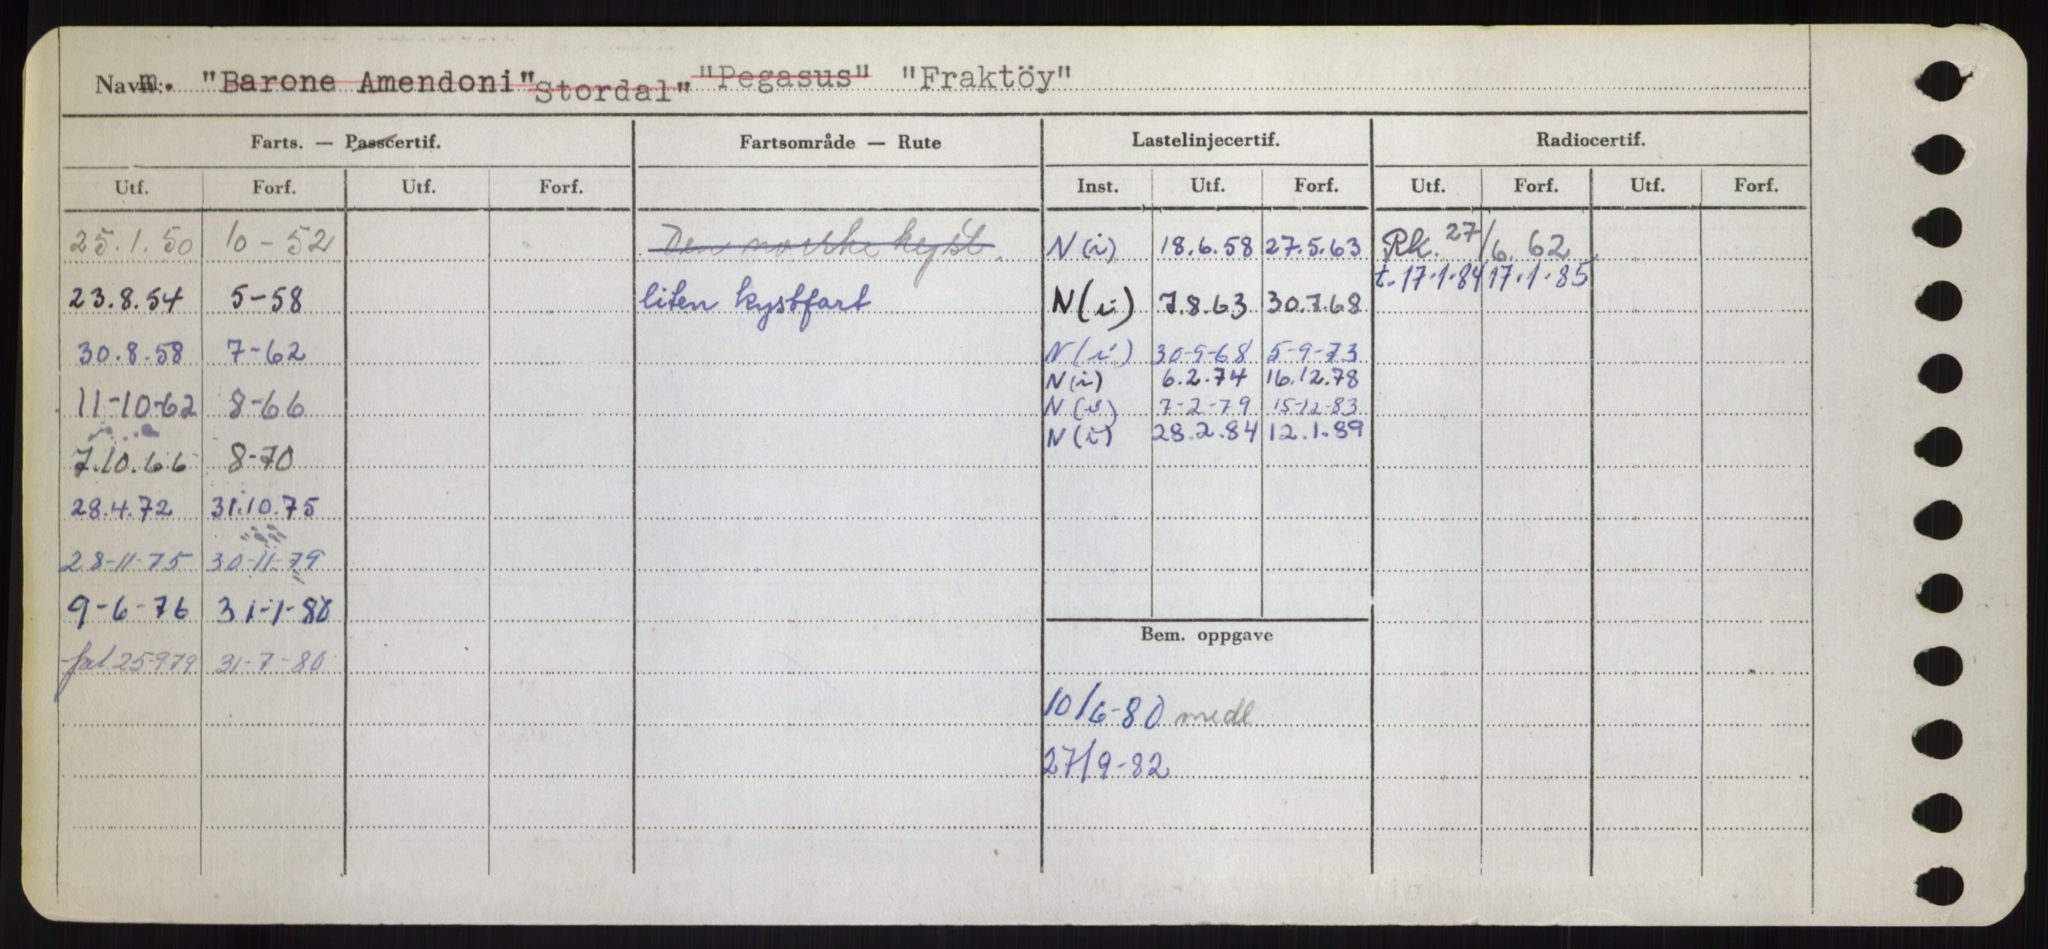 Navn: m. "Barone Amendoni" Stordal" "Pegasus" "Fraktöy"
Farts. — Passcertif. Fartsområde — Rute Lastelinjecertif. Radiocertif.
Utf. Forf. Utf. Forf. Inst. Utf. Forf. Utf. Forf. Utf. Forf.
25.1.50 10-52 Den norske kyst. N(i) 18.6.58 27.5.63 Rk. 27/6.62
t.17-1-84 17-1-85
23.8.54 5-58 liten kystfart N(i) 7.8.63 30.7.68
30.8.58 7-62 N(i) 30-9-68 5-9-73
N(i) 6.2.74 16.12.78
11-10-62 8-66 N(i) 7-2-79 15-12-83
N(i) 28.2.84 12.1.89
7.10.66 8-70
28.4.72 31.10.75
28-11-75 30-11-79
9-6-76 31-1-80
25-9-79 31-7-80
Bem. oppgave
10/6-80 medl
27/9-82